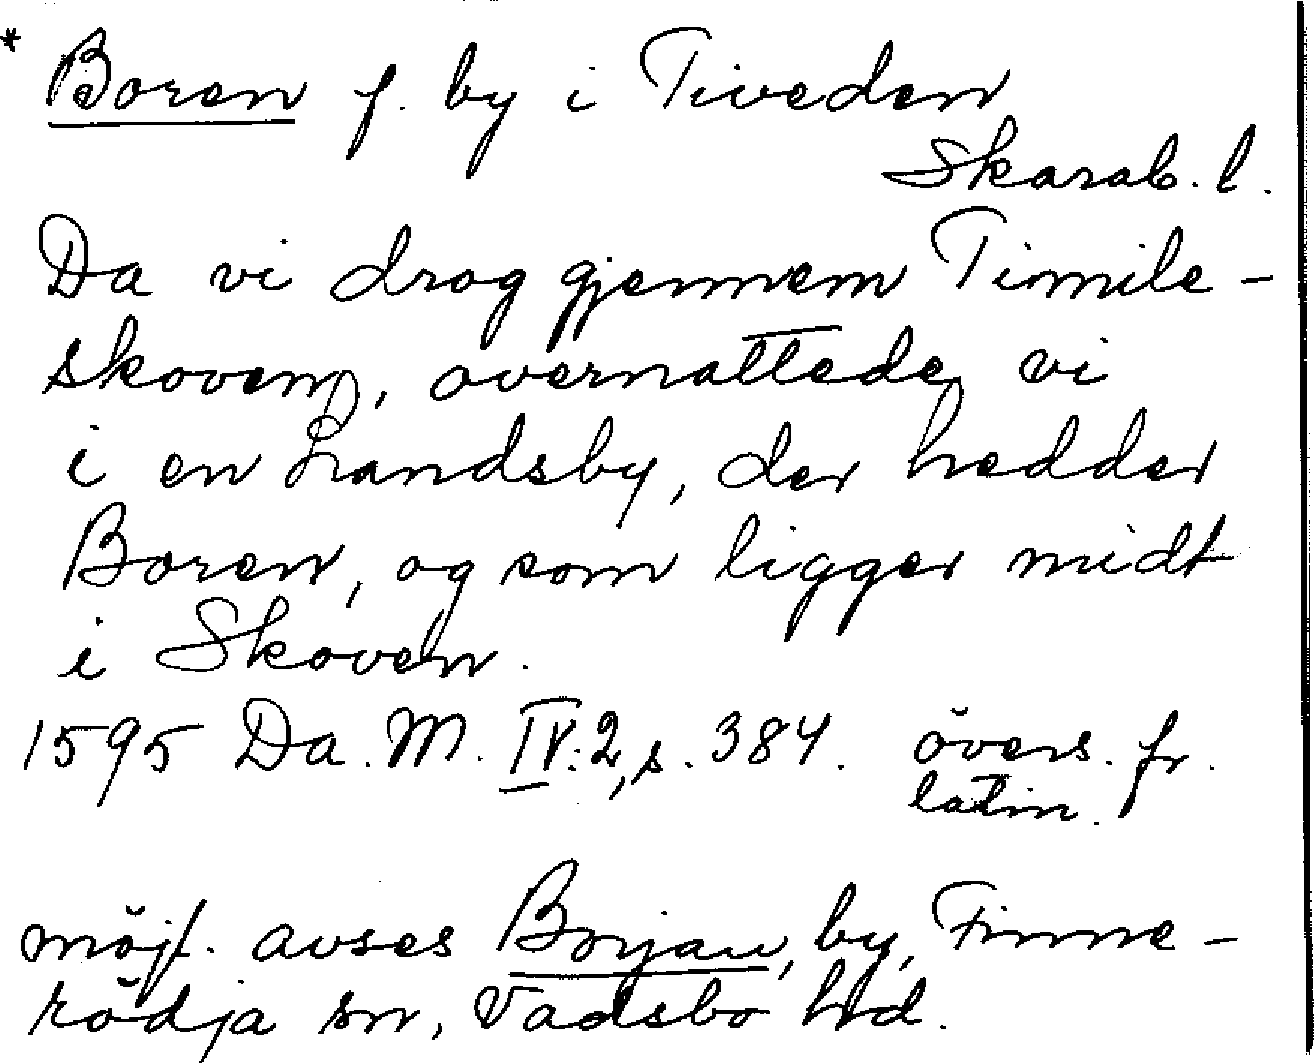 * Boren f. by i Tiveden
Skarab. l.
Da vi drog gjennem Timile-
skoven, overnattede vi
i en Landsby, der hedder
Boren, og som ligger midt
i Skoven.
1595 Da. M. IV:2, s. 384. övers. fr.
latin.
möjl. avses Borjan, by, Finne-
rödja sn, Vadsbo hd.